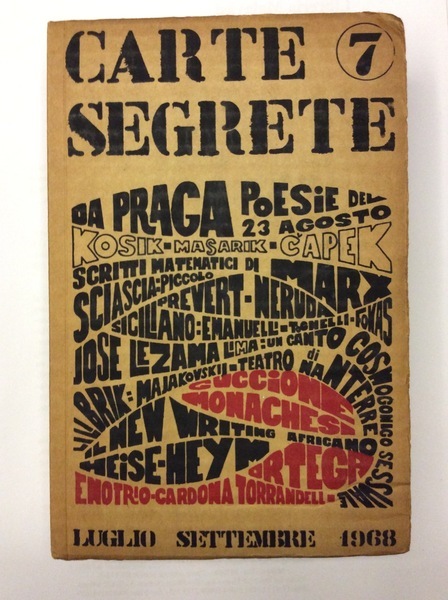 CARTE 7
SEGRETE
DA PRAGA POESIE DEL
23 AGOSTO
KOSIK - MASARIK - ČAPEK
SCRITTI MATEMATICI DI MARX
SCIASCIA - PICCOLO
PREVERT - NERUDA
SICILIANO - EMANUELLI - RONELLI - FOKAS
JOSE LEZAMA LIMA: UN CANTO COSMOGONICO SESSUALE
LILI BRIK: MAJAKOVSKII - TEATRO di NANTERRE
GUCCIONE
MONACHESI
IL NEW WRITING AFRICANO
HEISE - HEYM ORTEGA
ENOTRIO - CARDONA TORRANDELL -
LUGLIO SETTEMBRE 1968